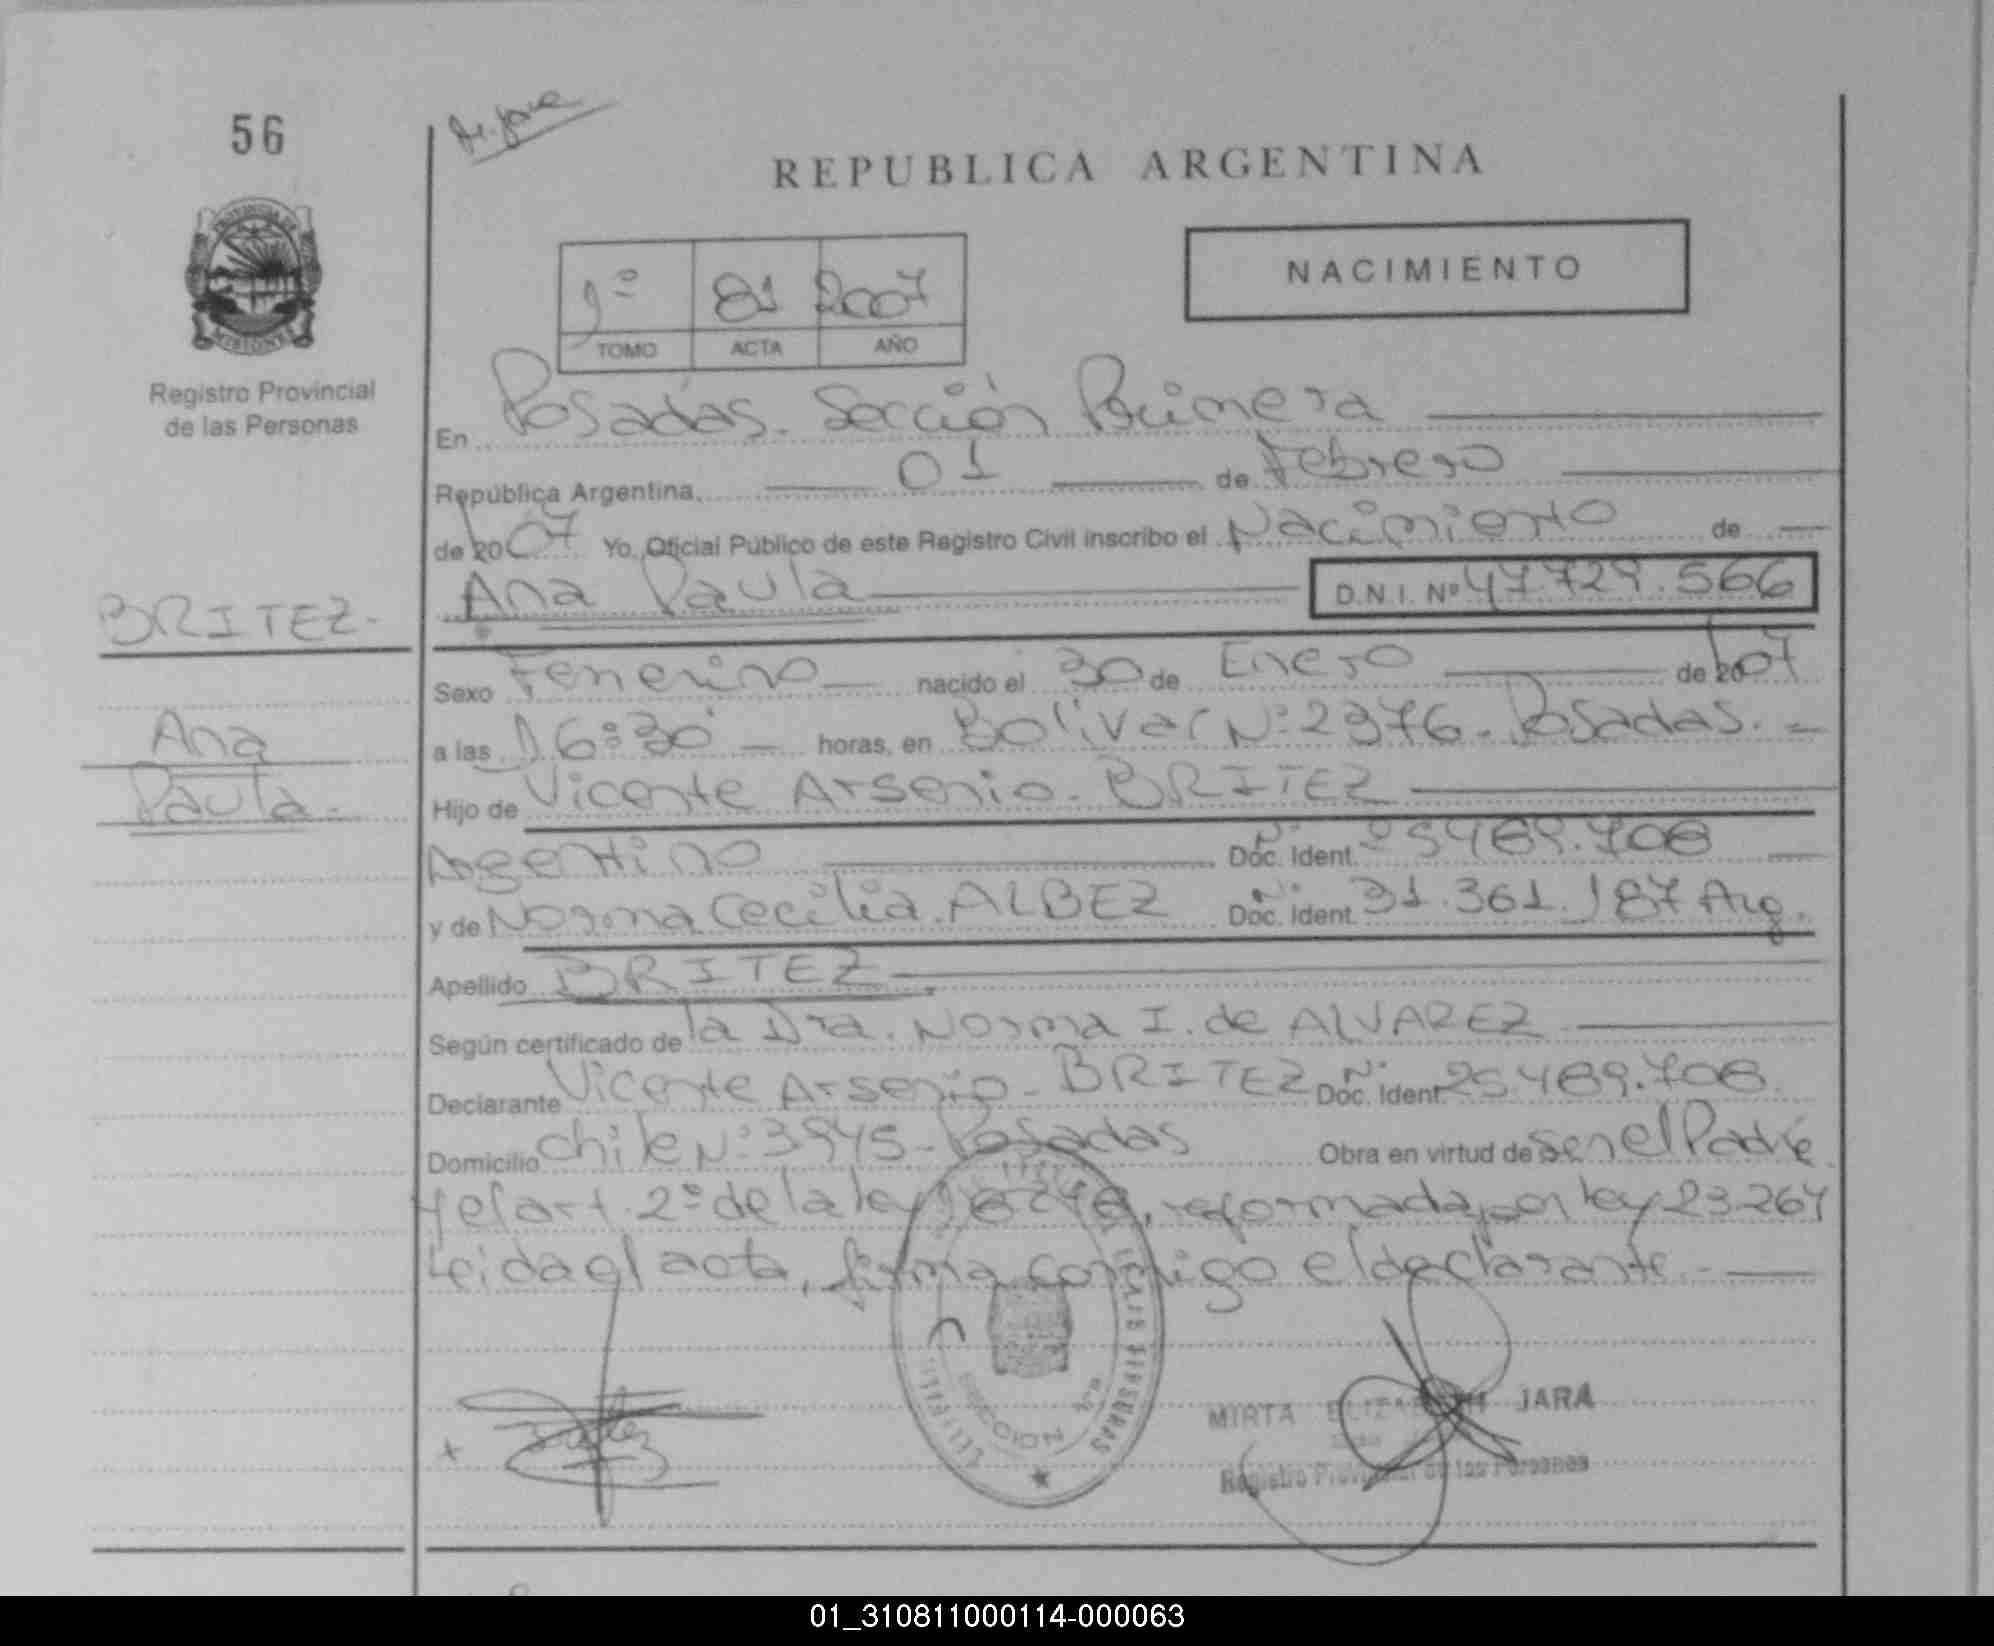 56
REPUBLICA ARGENTINA
PROVINCIA DE
MISIONES
Registro Provincial
de las Personas
NACIMIENTO
1º 81 2007
TOMO ACTA AÑO
En Posadas. Sección Primera
República Argentina, 01 de Febrero
de 2007 Yo Oficial Público de este Registro Civil inscribo el Nacimiento de
Ana Paula D.N.I. Nº 47.729.566
BRITEZ.
Sexo Femenino nacido el 30 de Enero de 2007
Ana
Paula.
a las 16:30 horas, en Bolivar Nº 2376. Posadas.
Hijo de Vicente Arsenio. BRITEZ
Argentino Doc. Ident. Nº 25489.708
y de Norma Cecilia. ALBEZ Doc. Ident. Nº 31.361.187 Arg.
Apellido BRITEZ
Según certificado de la Dra. Norma I. de ALVAREZ
Declarante Vicente Arsenio. BRITEZ Doc. Ident Nº 25.489.708.
Domicilio Chile Nº 3945. Posadas Obra en virtud de ser el Padre
y el art. 2º de la ley 18248, reformada por ley 23.264
Leida el acta, firma conmigo el declarante.
MIRTA ELIZABETH JARA
Registro Provincial de las Personas
SECCION
01_310811000114-000063